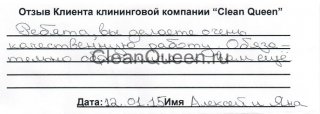 Отзыв Клиента клининговой компании "Clean Queen"
Ребята, вы делаете очень
качественную работу. Обяза-
тельно Вам ещё
CleanQueen.ru
Дата: 12.01.15 Имя Алексей и Яна